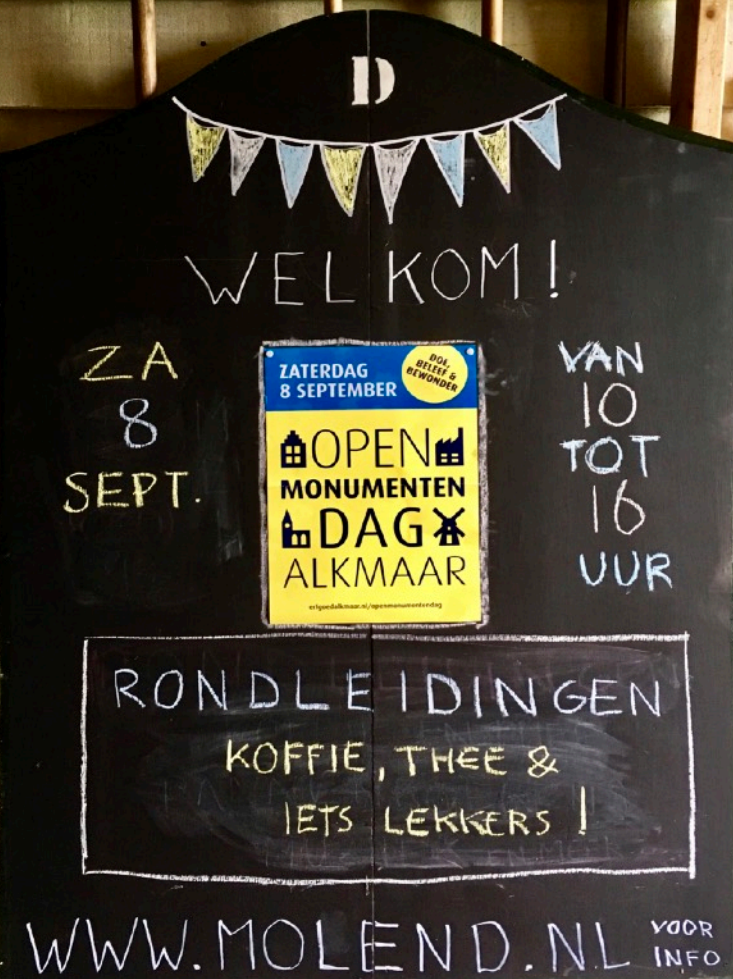 D
WELKOM!
ZA
8
SEPT.
ZATERDAG
8 SEPTEMBER
DOE,
BELEEF &
BEWONDER
OPEN
MONUMENTEN
DAG
ALKMAAR
erfgoedalkmaar.nl/openmonumentendag
VAN
10
TOT
16
UUR
RONDLEIDINGEN
KOFFIE, THEE &
IETS LEKKERS!
WWW.MOLEND.NL
VOOR
INFO